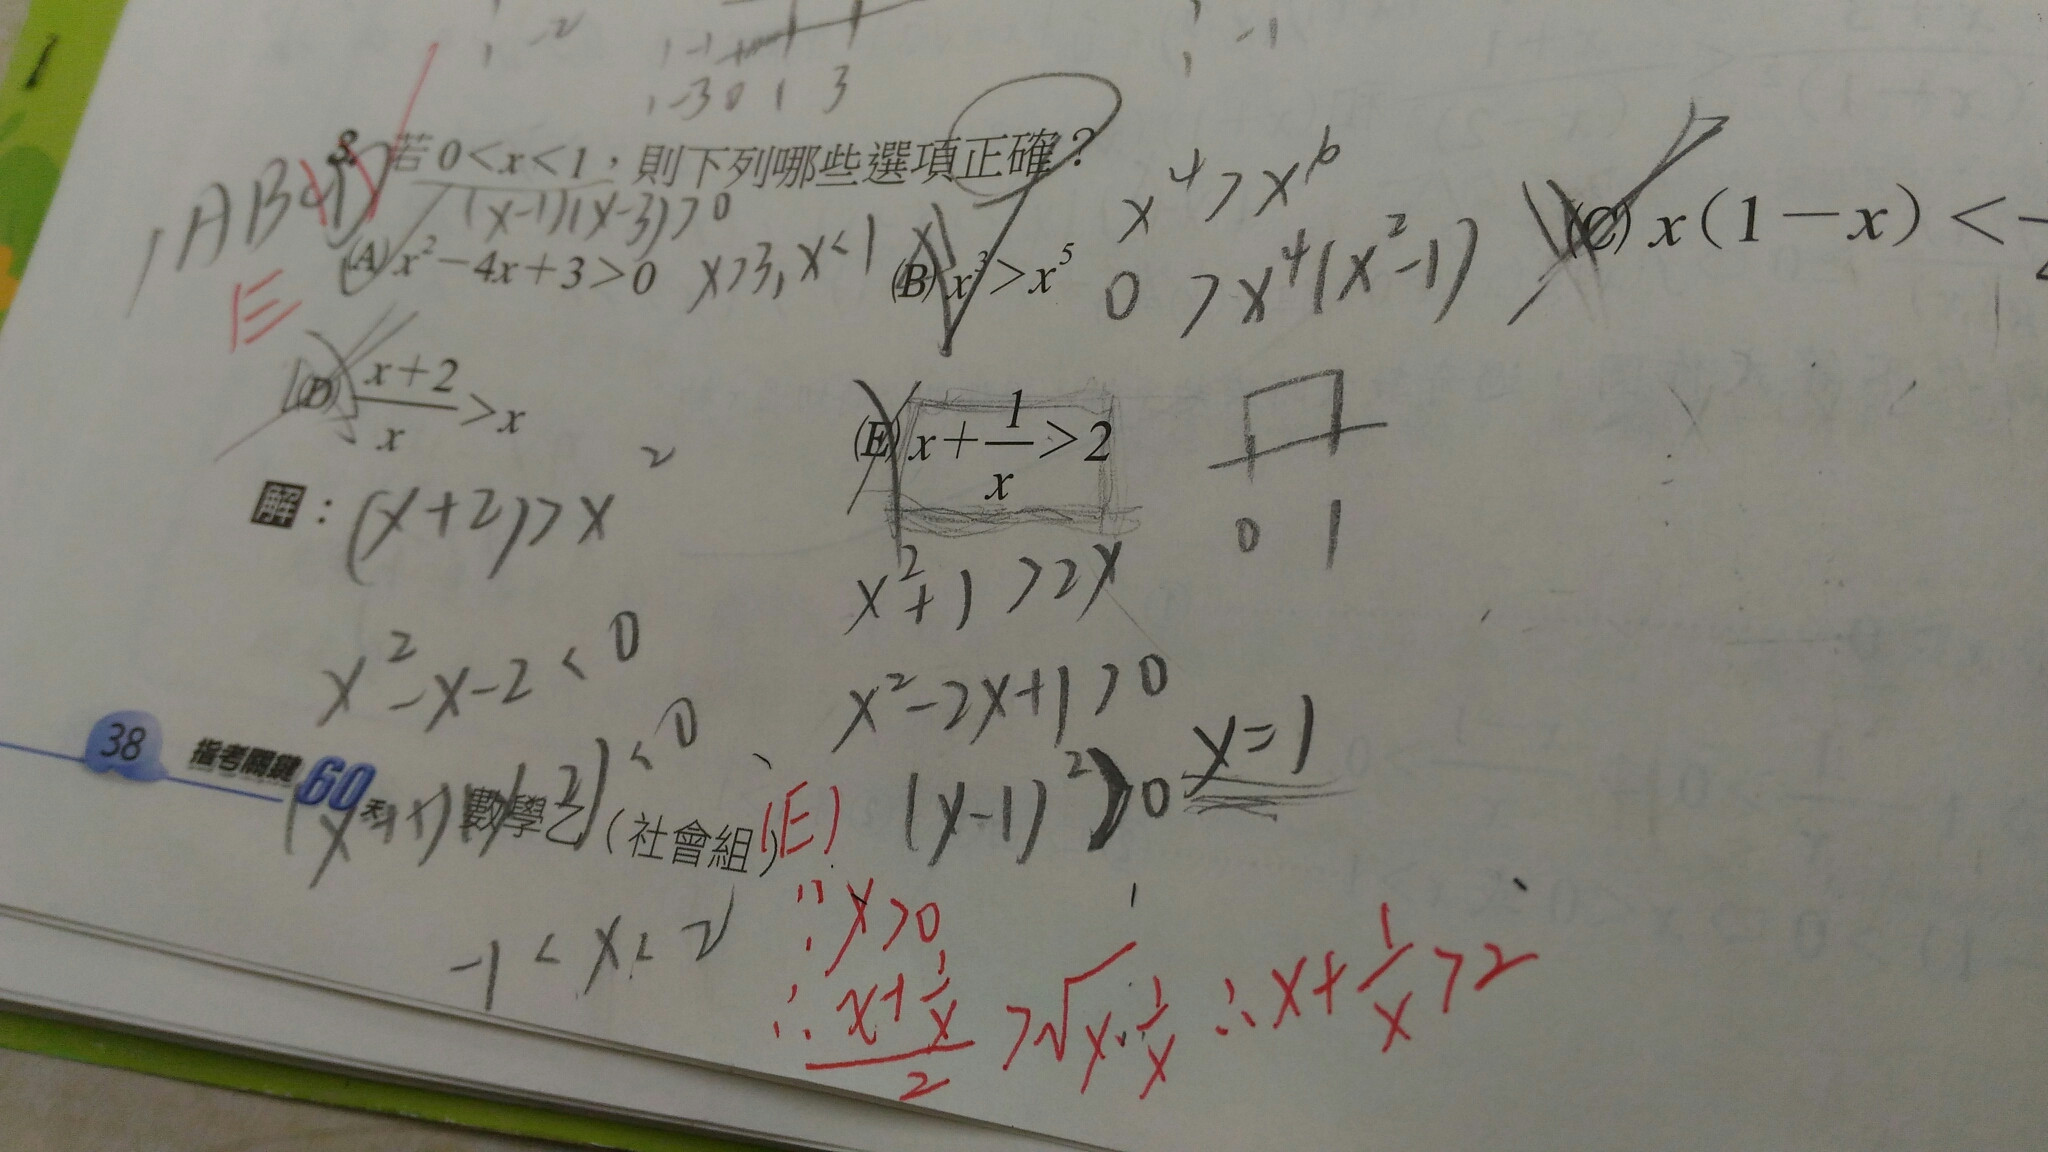 1
1 -2
1 -1
1 -3 0 1 3
1 -1
8. 若0<x<1，則下列哪些選項正確？
ABCD
E
(x-1)(x-3)>0
(A) x²-4x+3>0
x>3, x<1
(B) x³>x⁵
x⁴>x⁶
0>x⁴(x²-1)
(C) x(1-x)<
(D) x+2/x>x
(E) x+1/x>2
0 1
解：
(x+2)>x²
x²-x-2<0
-1<x<2
x²+1>2x
x²-2x+1>0
(x-1)²>0
x=1
(E)
∵x>0
∴ x+1/x / 2 >√x·1/x ∴x+1/x>2
38 指考關鍵60天 數學乙（社會組）